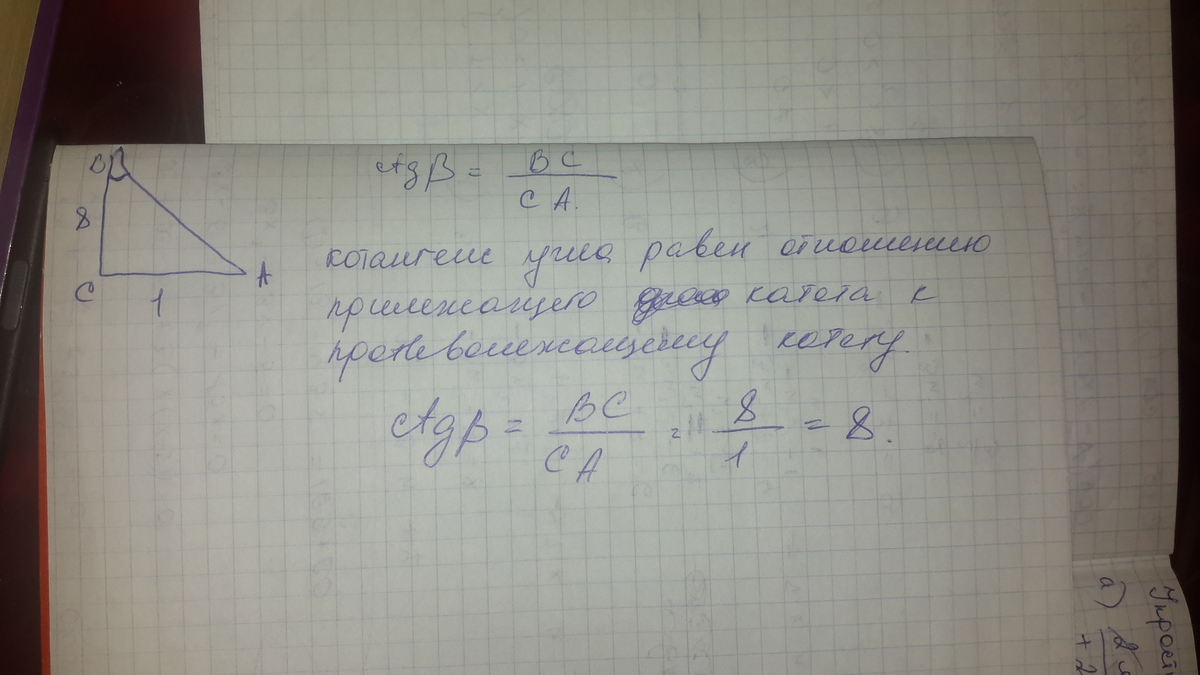 B β
8
C 1 A
ctgβ = BC / CA.
котангенс угла равен отношению
прилежащего катета к
противолежащему катету.
ctgβ = BC / CA = 8 / 1 = 8.
Упрост
а) 2
+ 2